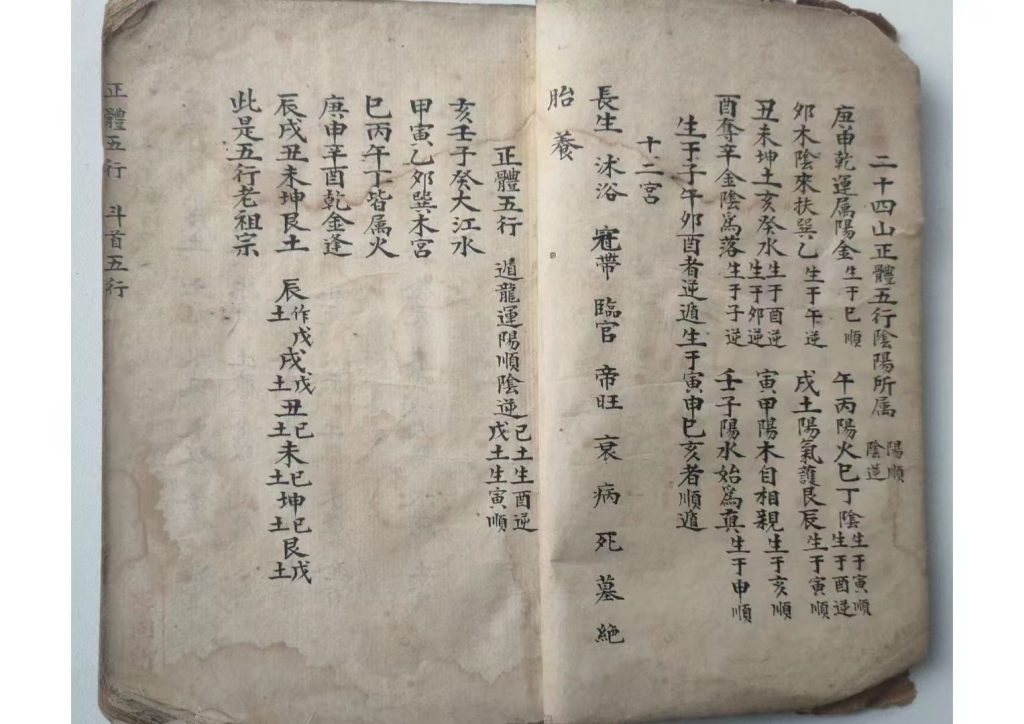 二十四山正體五行陰陽所属 陽順 陰逆
庚申乾運属陽金 生于巳順 午丙陽火巳丁陰 生于寅順 生于酉逆
夘木陰來扶巽乙 生于午逆 戌土陽氣護艮辰 生于寅順
丑未坤土亥癸水 生于酉逆 生于夘逆 寅甲陽木自相親 生于亥順
酉奪辛金陰為落 生于子逆 壬子陽水始為真 生于申順
生于子午夘酉者逆遁生于寅申巳亥者順遁
十二宮
長生 沐浴 冠帶 臨官 帝旺 衰 病 死 墓 絕
胎 養
正體五行 遁龍運陽順陰逆 己土生酉逆 戊土生寅順
亥壬子癸大江水
甲寅乙夘巽木宮
巳丙午丁皆属火
庚申辛酉乾金逢
辰戌丑未坤艮土 辰作戊土 戌戊土 丑己土 未己土 坤己土 艮戊土
此是五行老祖宗
正體五行 斗首五行